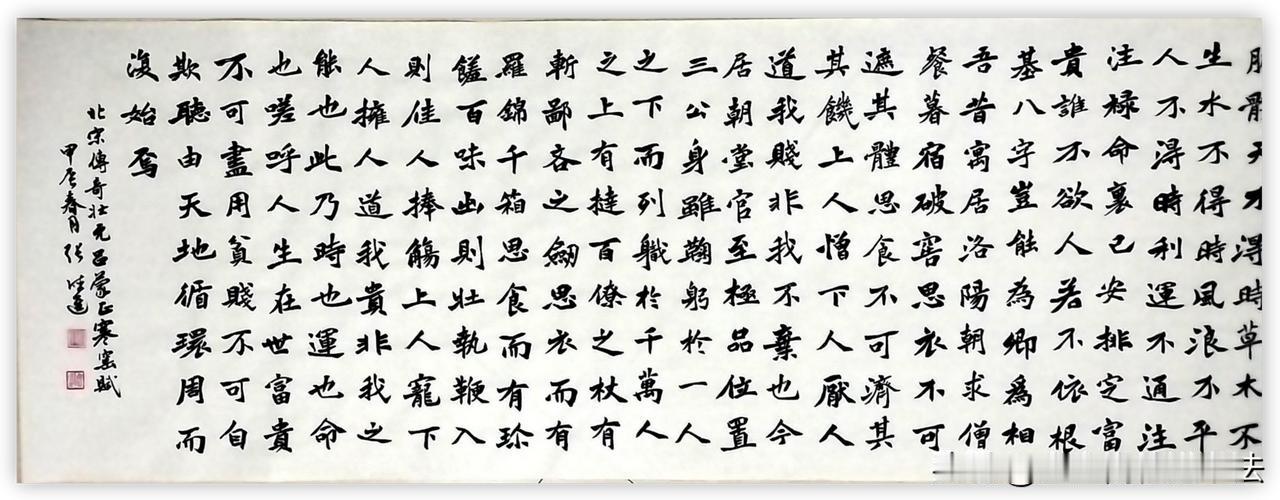 天不得時草木不
生水不得時風浪不平
人不得時利運不通注
注祿命裏已安排定富
貴誰不欲人若不依根
基八字豈能為卿為相
吾昔寓居洛陽朝求僧
餐暮宿破窖思衣不可
遮其體思食不可濟其
其饑上人憎下人厭人
道我賤非我不棄也今
居朝堂官至極品位置
三公身雖鞠躬於一人
之下而列職於千萬人
之上有撻百僚之杖有
斬鄙吝之劍思衣而有
羅錦千箱思食而有珍
饈百味出則壯執鞭入
則佳人捧觴上人寵下
人擁人道我貴非我之
能也此乃時也運也命
也嗟呼人生在世富貴
不可盡用貧賤不可自
欺聽由天地循環周而
復始焉
北宋傳奇壯元吕蒙正寒窯賦
甲辰春月張
去